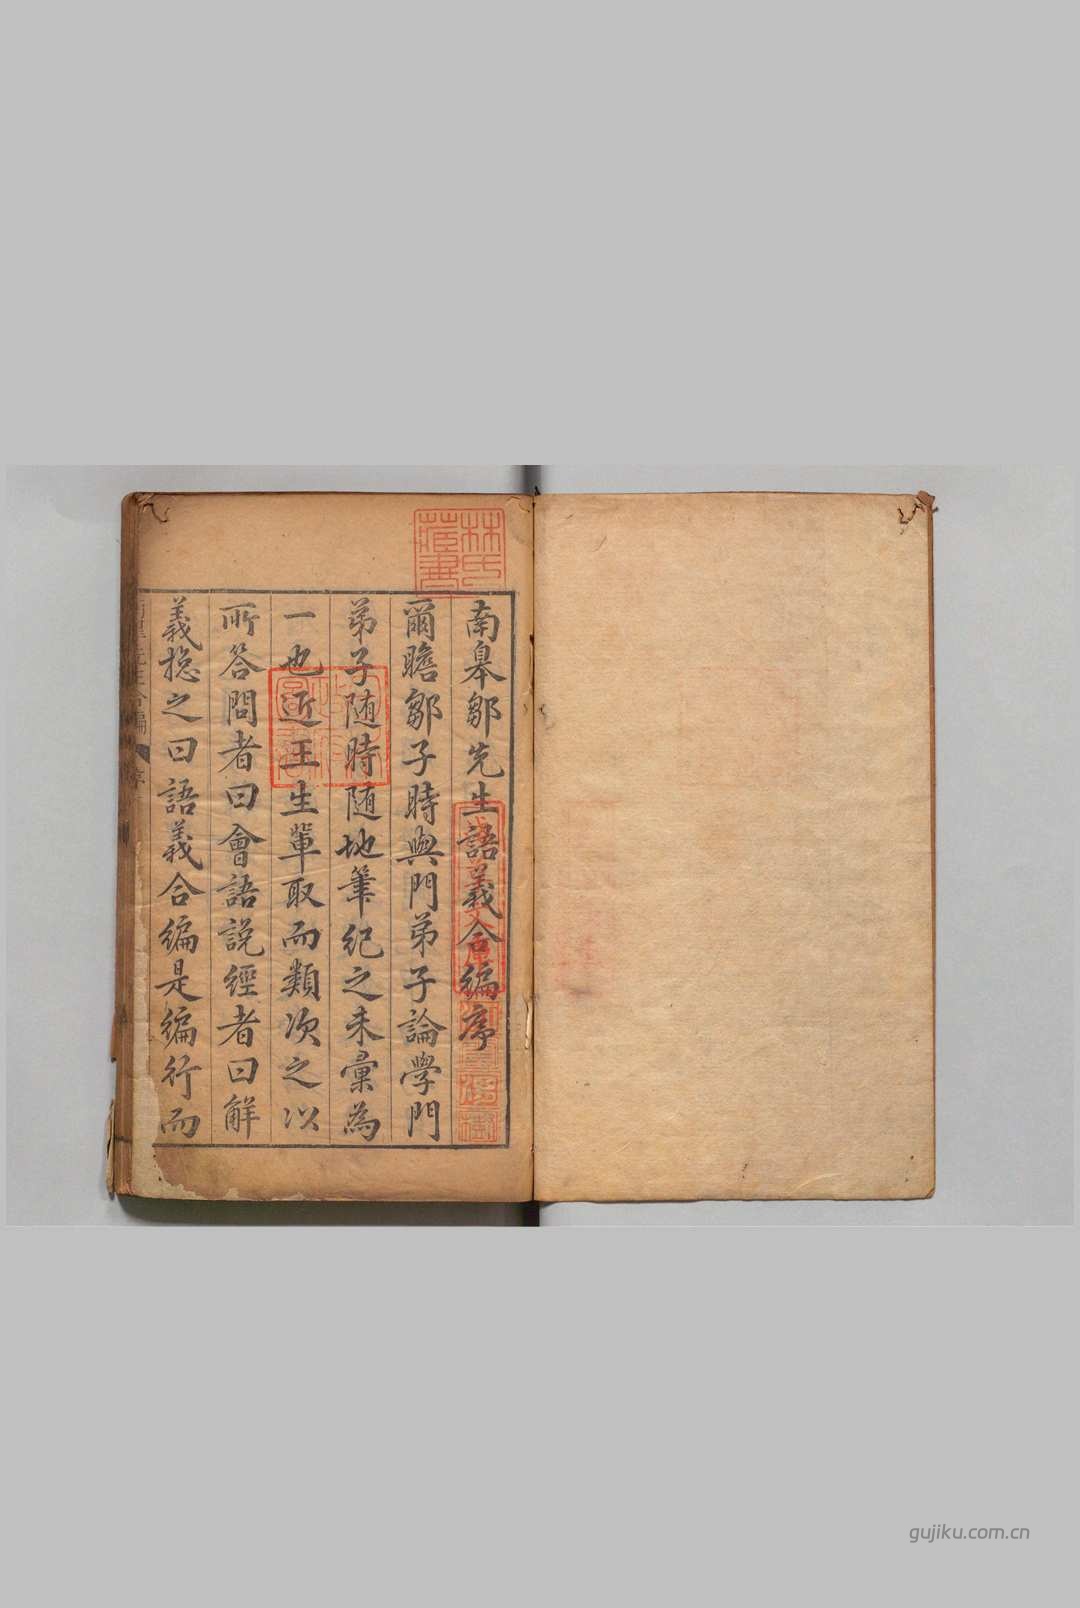 南皋鄒先生語義合編序
爾瞻鄒子時與門弟子論學門
弟子随時随地筆紀之未彙為
一也近王生軰取而類次之以
所答問者曰會語説經者曰解
義揔之曰語義合編是編行而
林氏
蔵書
gujiku.com.cn